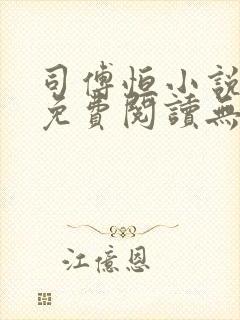 司傅恒小說
免費閱讀無
江億恩